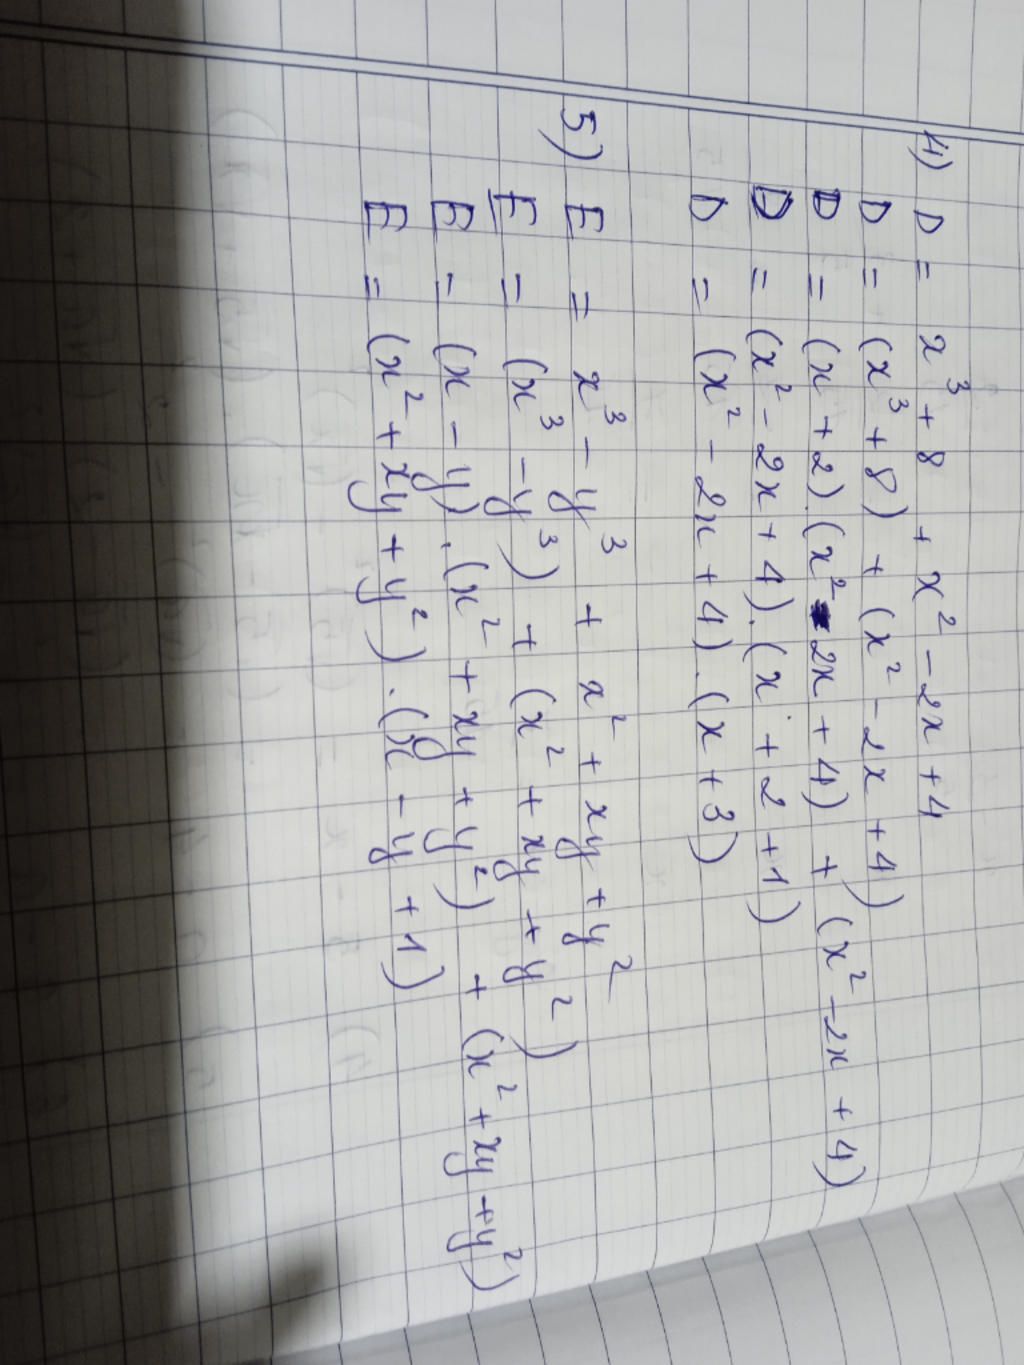 4) D = x³ + 8 + x² - 2x + 4
D = (x³ + 8) + (x² - 2x + 4)
D = (x + 2).(x² - 2x + 4) + (x² - 2x + 4)
D = (x² - 2x + 4).(x + 2 + 1)
D = (x² - 2x + 4).(x + 3)
5) E = x³ - y³ + x² + xy + y²
E = (x³ - y³) + (x² + xy + y²)
E = (x - y).(x² + xy + y²) + (x² + xy + y²)
E = (x² + xy + y²).(x - y + 1)